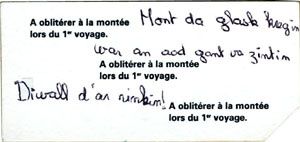 A oblitérer à la montée
lors du 1er voyage.
Mont da glask kregin
war an aod gant va zintin
A oblitérer à la montée
lors du 1er voyage.
Diwall d'ar rinkin!
A oblitérer à la montée
lors du 1er voyage.